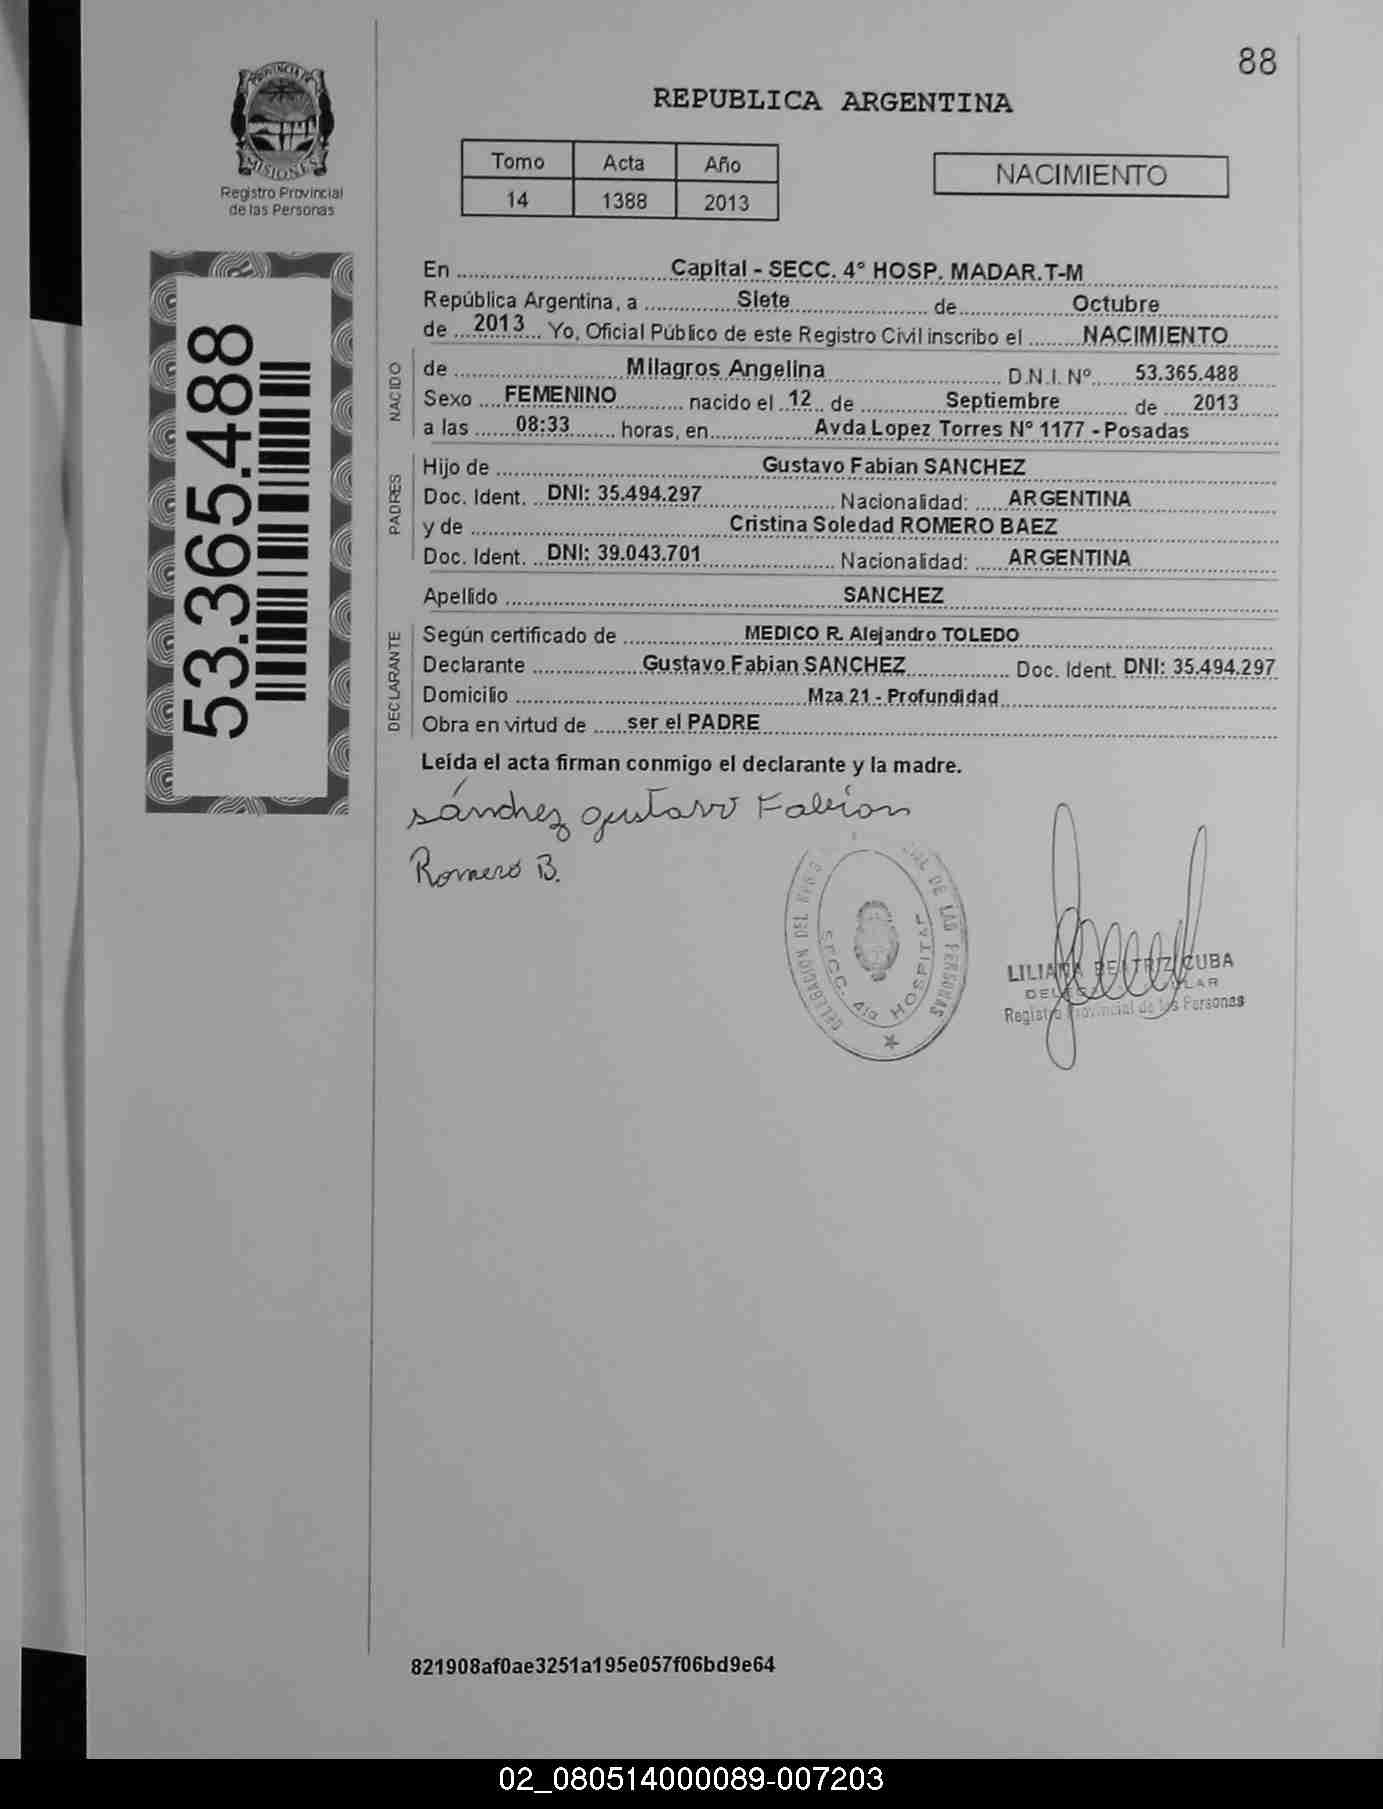 88
REPUBLICA ARGENTINA
PROVINCIA DE
MISIONES
Registro Provincial
de las Personas
Tomo Acta Año
14 1388 2013
NACIMIENTO
53.365.488
En Capital - SECC. 4° HOSP. MADAR.T-M
República Argentina, a Siete de Octubre
de 2013 Yo, Oficial Público de este Registro Civil inscribo el NACIMIENTO
NACIDO
de Milagros Angelina D.N.I. Nº 53.365.488
Sexo FEMENINO nacido el 12 de Septiembre de 2013
a las 08:33 horas, en Avda Lopez Torres N° 1177 - Posadas
PADRES
Hijo de Gustavo Fabian SANCHEZ
Doc. Ident. DNI: 35.494.297 Nacionalidad: ARGENTINA
y de Cristina Soledad ROMERO BAEZ
Doc. Ident. DNI: 39.043.701 Nacionalidad: ARGENTINA
Apellido SANCHEZ
DECLARANTE
Según certificado de MEDICO R. Alejandro TOLEDO
Declarante Gustavo Fabian SANCHEZ Doc. Ident. DNI: 35.494.297
Domicilio Mza 21 - Profundidad
Obra en virtud de ser el PADRE
Leída el acta firman conmigo el declarante y la madre.
sánchez gustavo Fabián
Romero B.
DELEGACION DEL DE LAS PERSONAS
SECC. 4ta HOSPITAL
LILIANA BEATRIZ CUBA
Registro Provincial de las Personas
821908af0ae3251a195e057f06bd9e64
02_080514000089-007203